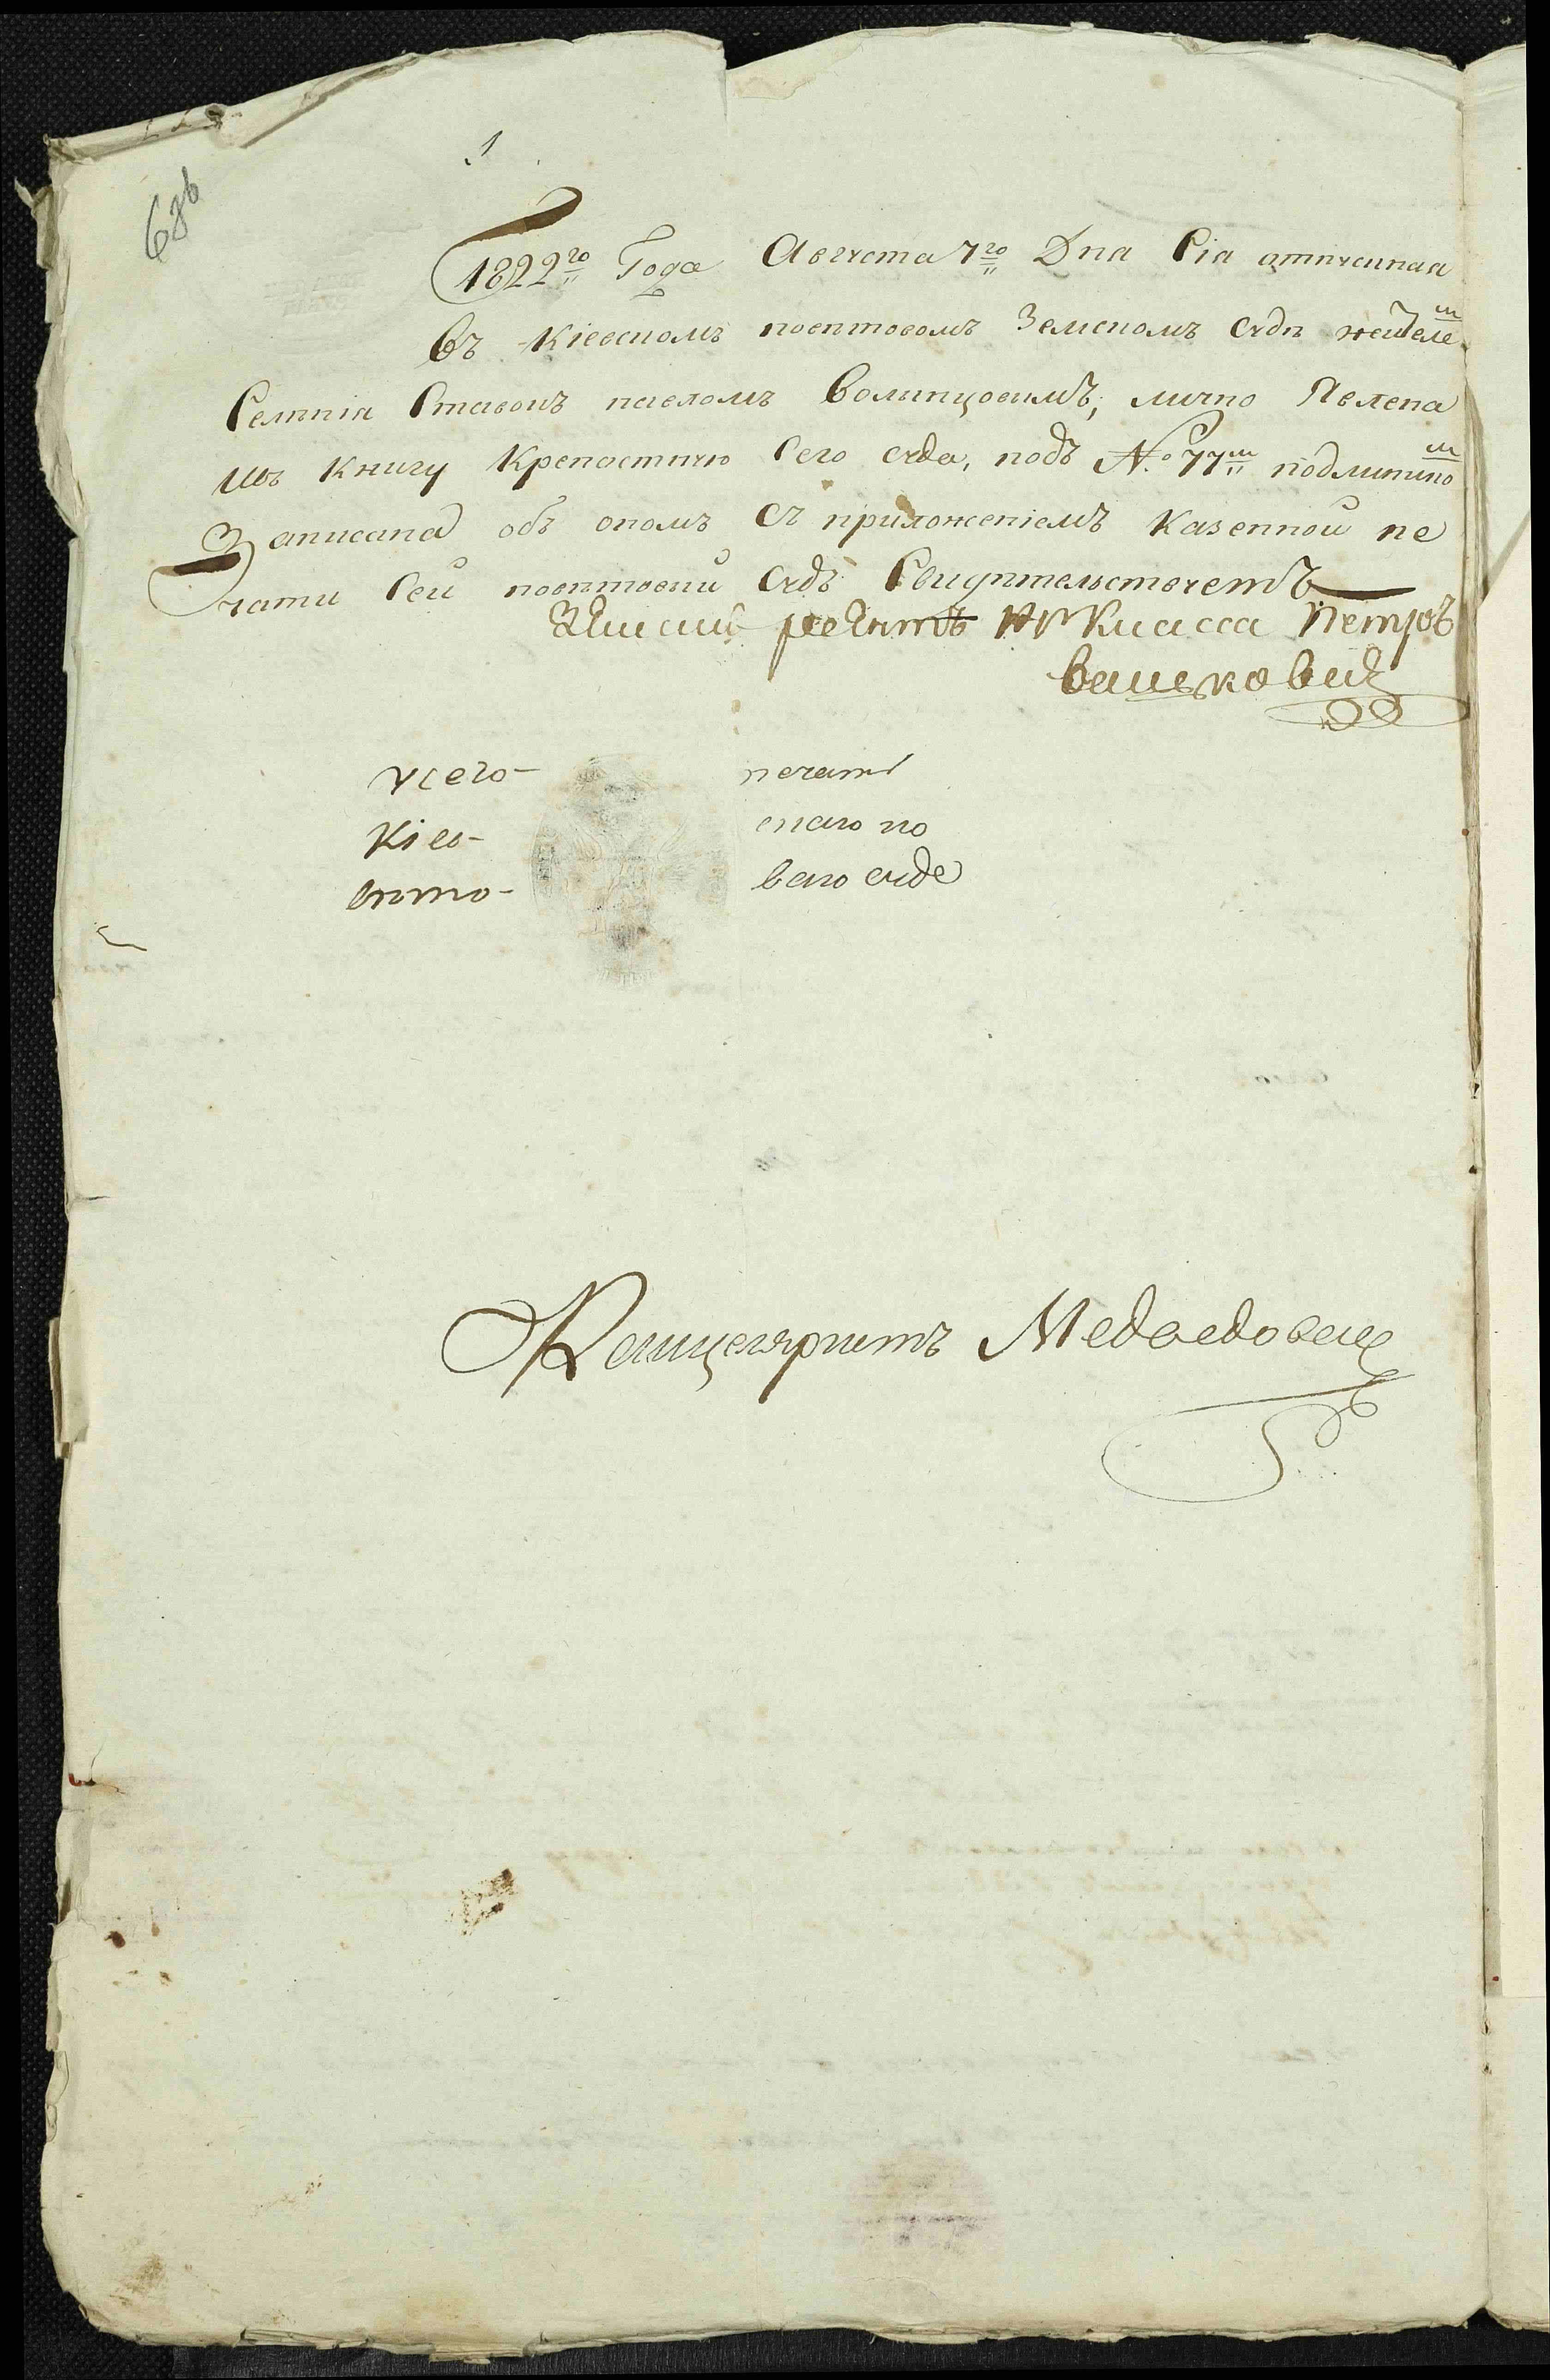 1
6зв
1822го Года Августа 7го Дня Сія отпускная
въ Кіевскомъ поветовомъ Земскомъ суде жителе
Селенія Ставокъ павломъ Волынцовымъ, лично Явлена
ивъ Книгу Крепостную Сего суда, подъ №. 77м подлинно
Записана объ ономъ съ приложеніемъ Казенной пе
чати Сей поветовый судъ Свидетельствуетъ
Земский регентъ Класса Петръ
Васьковичь
Усего- печать
Кіев- скаго по
вето- ваго суде
Канцеляристъ Медведовский